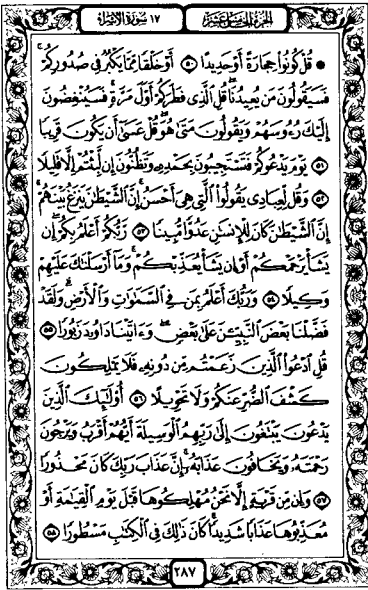 الجزء الخامس عشر ١٧ سورة الإسراء
۞ قُلْ كُونُوا۟ حِجَارَةً أَوْ حَدِيدًا ٥٠ أَوْ خَلْقًا مِّمَّا يَكْبُرُ فِى صُدُورِكُمْ ۚ
فَسَيَقُولُونَ مَن يُعِيدُنَا ۖ قُلِ ٱلَّذِى فَطَرَكُمْ أَوَّلَ مَرَّةٍ ۚ فَسَيُنْغِضُونَ
إِلَيْكَ رُءُوسَهُمْ وَيَقُولُونَ مَتَىٰ هُوَ ۖ قُلْ عَسَىٰٓ أَن يَكُونَ قَرِيبًا
٥١ يَوْمَ يَدْعُوكُمْ فَتَسْتَجِيبُونَ بِحَمْدِهِۦ وَتَظُنُّونَ إِن لَّبِثْتُمْ إِلَّا قَلِيلًا
٥٢ وَقُل لِّعِبَادِى يَقُولُوا۟ ٱلَّتِى هِىَ أَحْسَنُ ۚ إِنَّ ٱلشَّيْطَٰنَ يَنزَغُ بَيْنَهُمْ ۚ
إِنَّ ٱلشَّيْطَٰنَ كَانَ لِلْإِنسَٰنِ عَدُوًّا مُّبِينًا ٥٣ رَّبُّكُمْ أَعْلَمُ بِكُمْ ۖ إِن
يَشَأْ يَرْحَمْكُمْ أَوْ إِن يَشَأْ يُعَذِّبْكُمْ ۚ وَمَآ أَرْسَلْنَٰكَ عَلَيْهِمْ
وَكِيلًا ٥٤ وَرَبُّكَ أَعْلَمُ بِمَن فِى ٱلسَّمَٰوَٰتِ وَٱلْأَرْضِ ۗ وَلَقَدْ
فَضَّلْنَا بَعْضَ ٱلنَّبِيِّـۧنَ عَلَىٰ بَعْضٍ ۖ وَءَاتَيْنَا دَاوُۥدَ زَبُورًا ٥٥
قُلِ ٱدْعُوا۟ ٱلَّذِينَ زَعَمْتُم مِّن دُونِهِۦ فَلَا يَمْلِكُونَ
كَشْفَ ٱلضُّرِّ عَنكُمْ وَلَا تَحْوِيلًا ٥٦ أُو۟لَٰٓئِكَ ٱلَّذِينَ
يَدْعُونَ يَبْتَغُونَ إِلَىٰ رَبِّهِمُ ٱلْوَسِيلَةَ أَيُّهُمْ أَقْرَبُ وَيَرْجُونَ
رَحْمَتَهُۥ وَيَخَافُونَ عَذَابَهُۥٓ ۚ إِنَّ عَذَابَ رَبِّكَ كَانَ مَحْذُورًا
٥٧ وَإِن مِّن قَرْيَةٍ إِلَّا نَحْنُ مُهْلِكُوهَا قَبْلَ يَوْمِ ٱلْقِيَٰمَةِ أَوْ
مُعَذِّبُوهَا عَذَابًا شَدِيدًا ۚ كَانَ ذَٰلِكَ فِى ٱلْكِتَٰبِ مَسْطُورًا ٥٨
٢٨٧